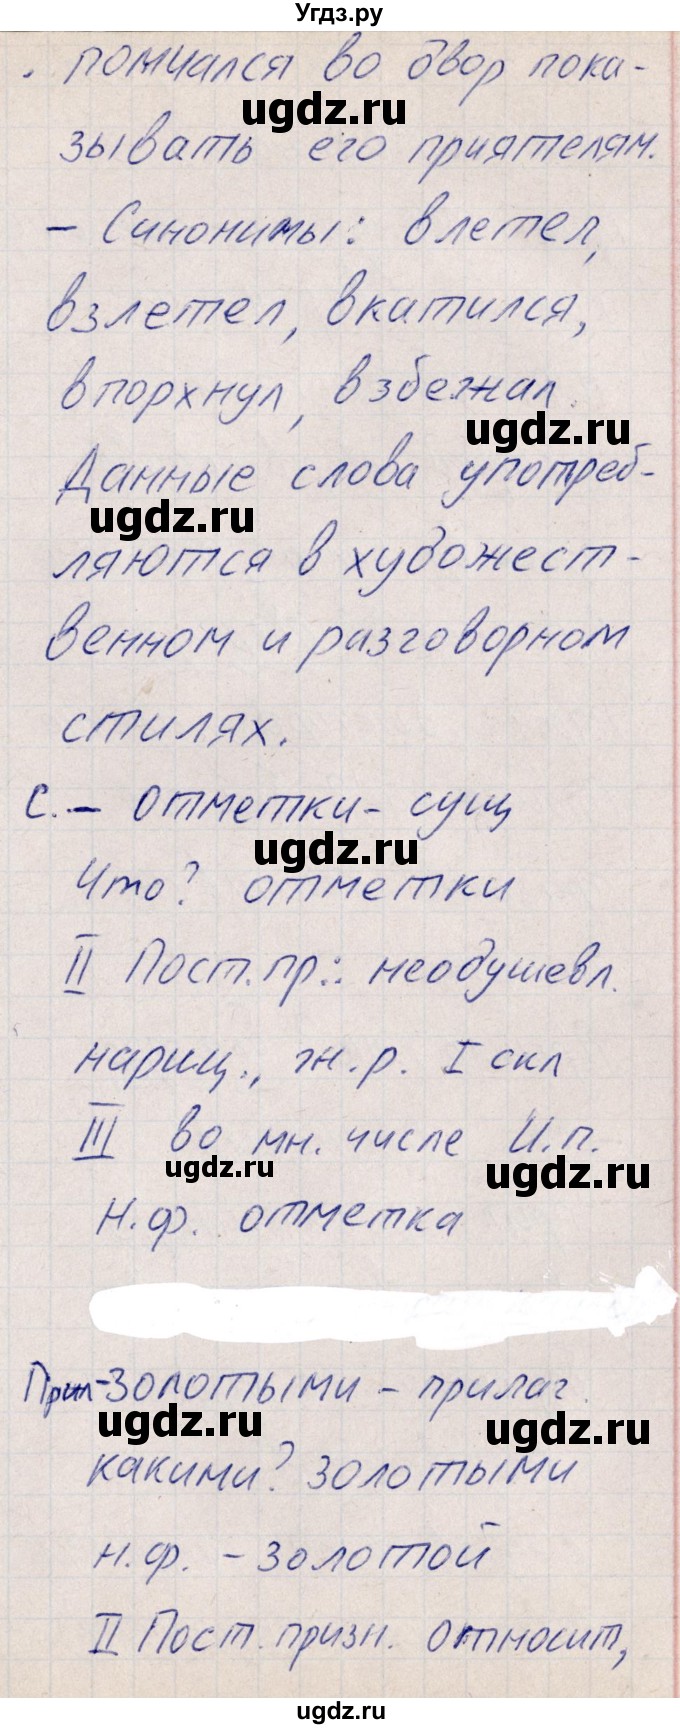 Угдз.ру
помчался во двор пока-
ugdz.ru
зывать его приятелям.
- Синонимы: влетел,
взлетел, вкатился,
впорхнул, взбежал.
ugdz.ru
Данные слова употреб-
ugdz.ru
ляются в художест-
венном и разговорном
стилях.
С. - отметки - сущ
ugdz.ru
Что? отметки
II Пост. пр.: неодушевл.
нариц., ж.р. I скл
III во мн. числе И.п.
ugdz.ru ugdz.ru
Н.ф. отметка
Прил-золотыми - прилаг.
ugdz.ru ugdz.ru
какими? золотыми
н.ф. - золотой
II Пост. призн. относит,
ugdz.ru